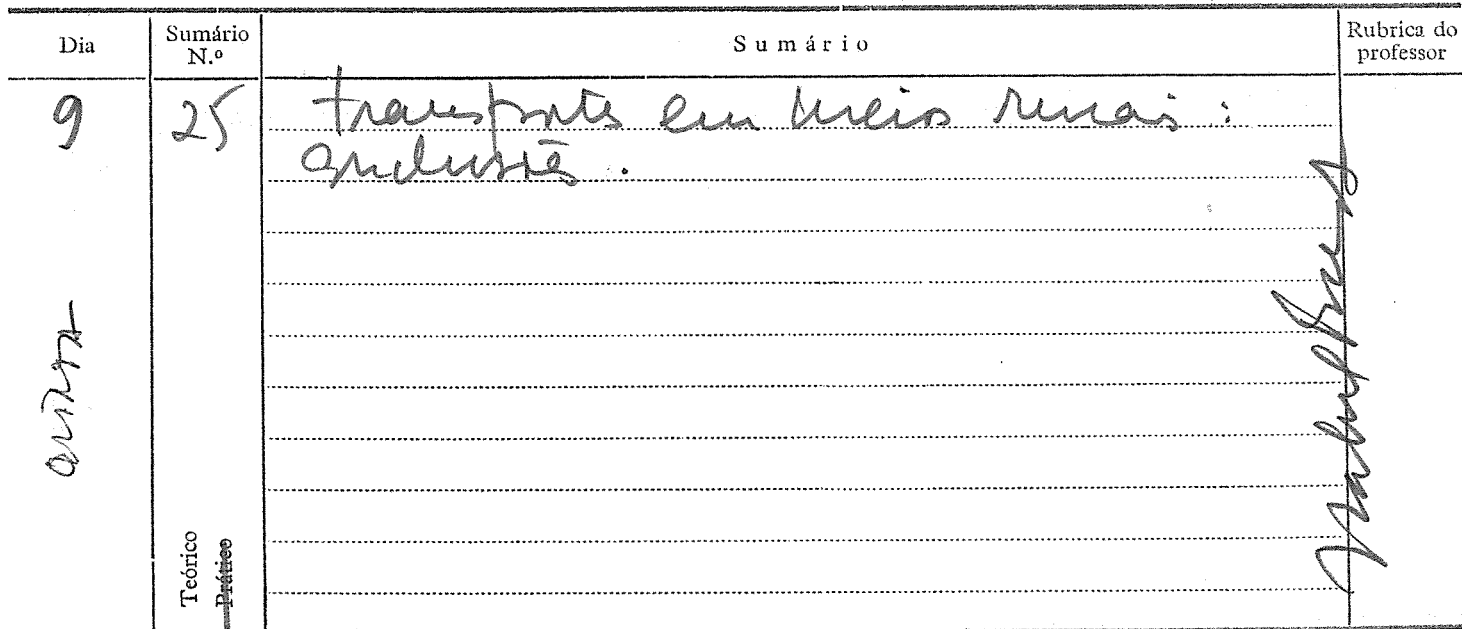 Dia
Sumário N.º
Sumário
Rubrica do professor
9
25
Transportes em meios rurais :
conclusões .
Teórico
Prático